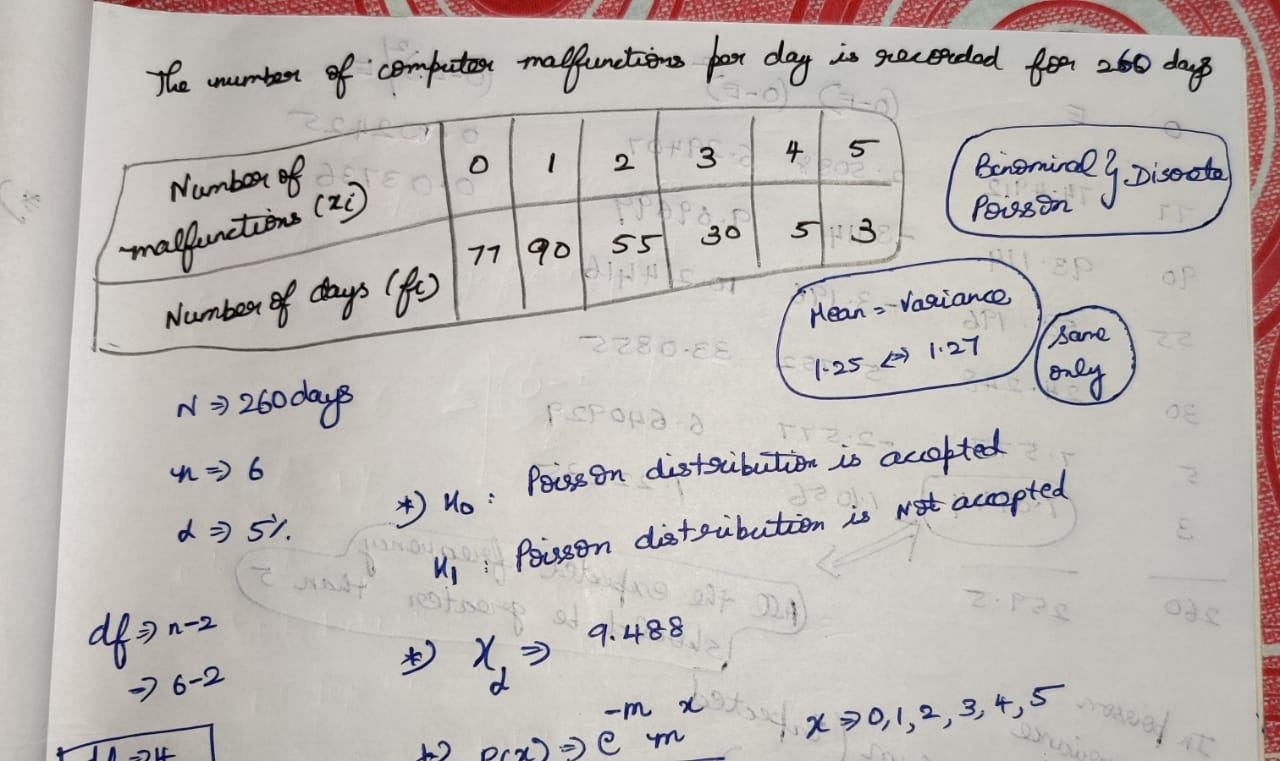 The number of computer malfunctions per day is recorded for 260 days
Number of malfunctions (xi) 0 1 2 3 4 5
Number of days (fi) 77 90 55 30 5 3
Binominal } Discrete
Poisson
Mean = Variance
1.25 <=> 1.27
Same
only
N => 260 days
n => 6
α => 5%
*) H₀ : Poisson distribution is accepted
H₁ : Poisson distribution is Not accepted
df => n-2
=> 6-2
*) χα => 9.488
*) P(x) => e^-m m^x
x => 0, 1, 2, 3, 4, 5